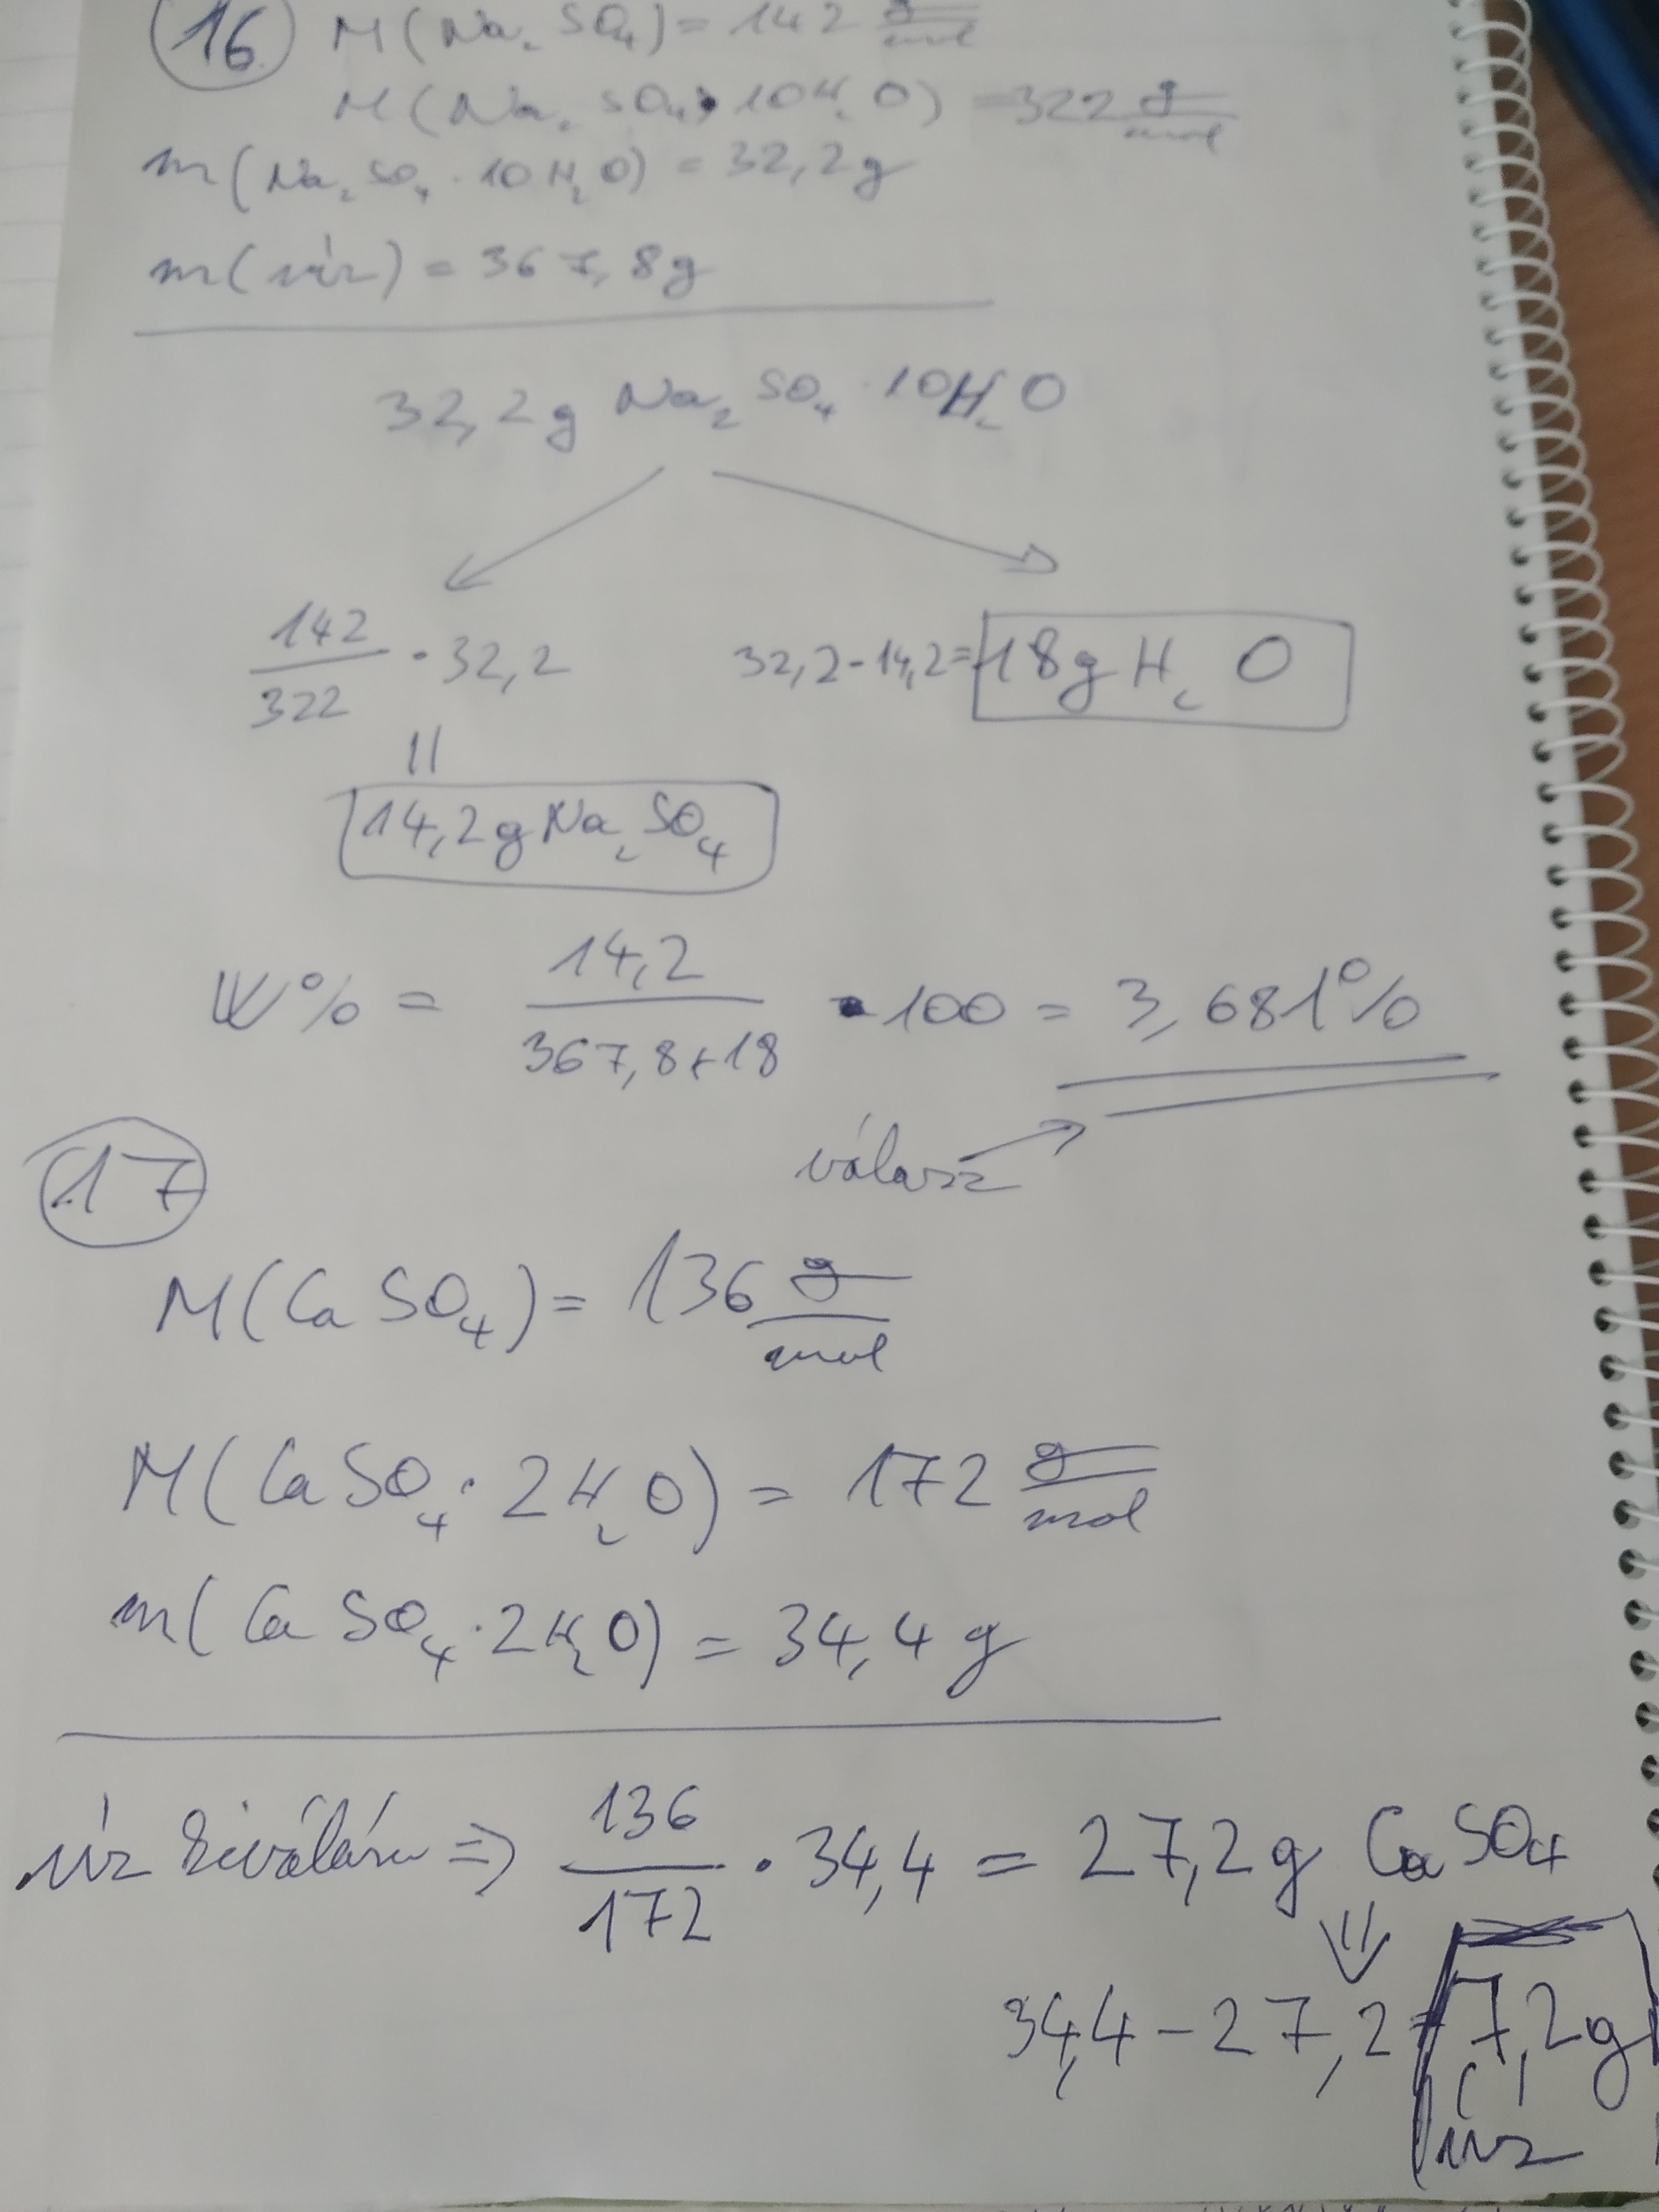 16. M(Na₂SO₄) = 142 g/mol
M(Na₂SO₄·10H₂O) = 322 g/mol
m(Na₂SO₄·10H₂O) = 32,2g
m(víz) = 367,8g
32,2g Na₂SO₄·10H₂O
142/322 · 32,2 32,2-14,2= 18g H₂O
||
14,2g Na₂SO₄
W% = 14,2/367,8+18 · 100 = 3,681%
válasz
17
M(CaSO₄) = 136 g/mol
M(CaSO₄·2H₂O) = 172 g/mol
m(CaSO₄·2H₂O) = 34,4 g
víz kiválása ⇒ 136/172 · 34,4 = 27,2g CaSO₄
⇓
34,4 - 27,2 = 7,2g
víz